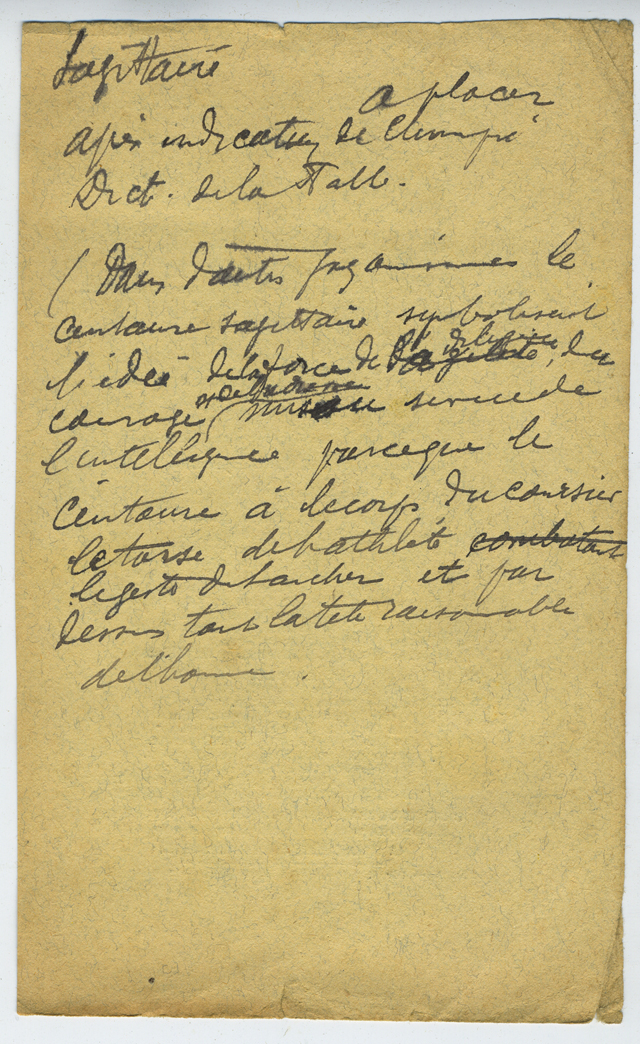 Sagittaire
a placer
après indication de
Dict. de la Fable.
( Dans d'autres le
centaure sagittaire symbolisait
l'idée de la force de la du
courage mis au service de
l'intelligence parceque le
centaure à le corps du coursier
le torse de l'athlète combatant
le geste de l'archer et par
dessus tout la tete raisonnable
de l'homme.